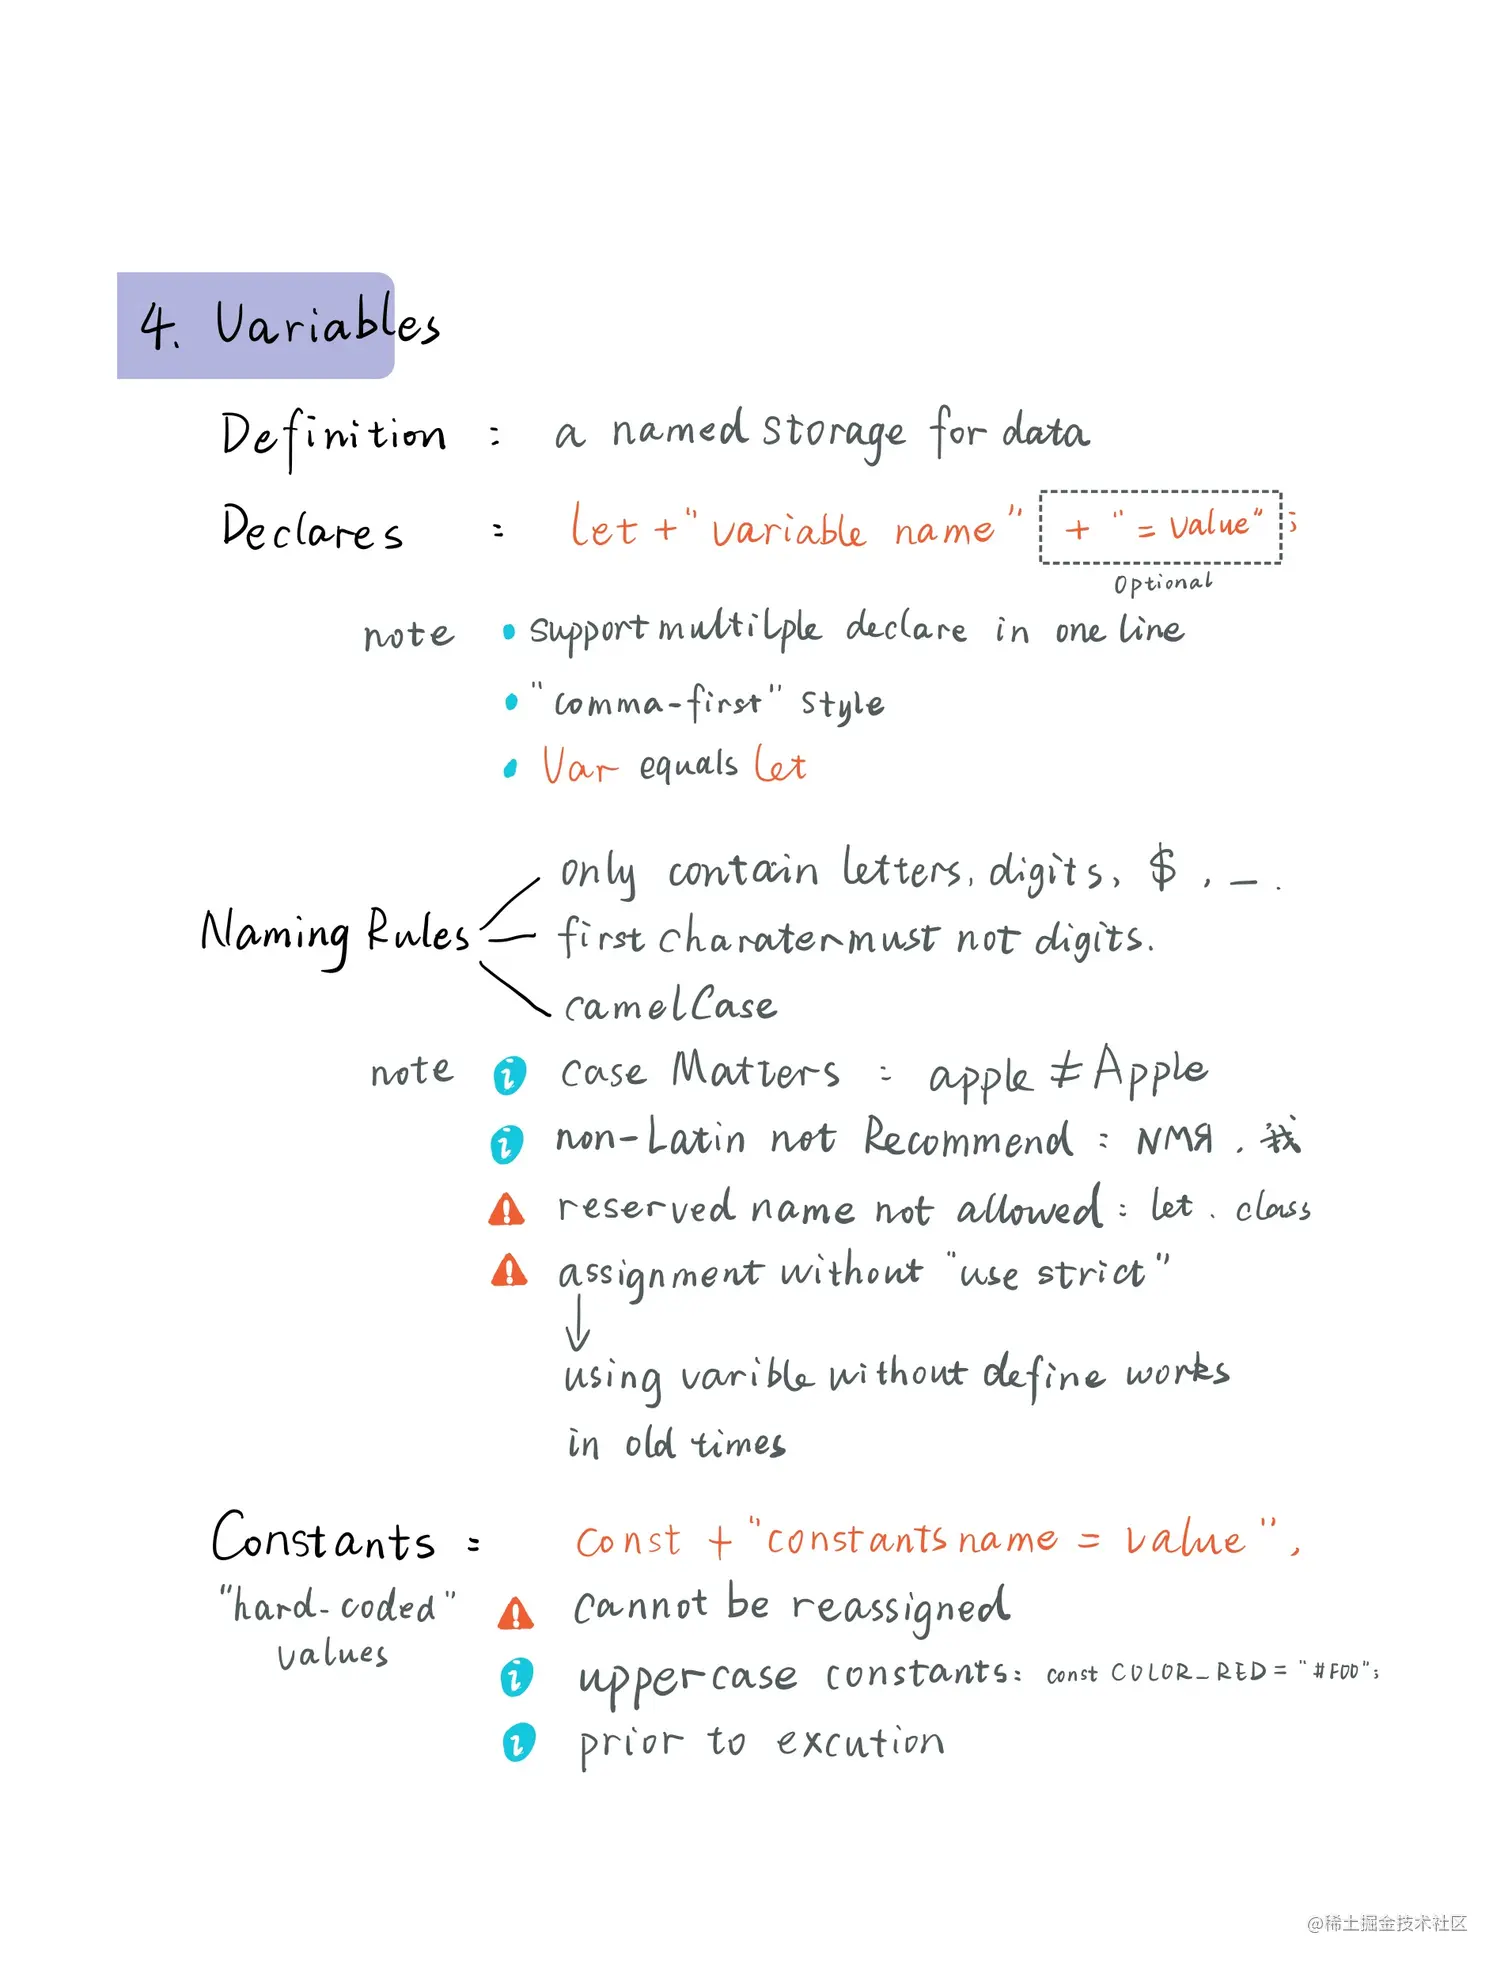 4. Variables
Definition : a named storage for data
Declares : let + "variable name" + "= value" ;
Optional
note • support multilple declare in one line
• "comma-first" style
• Var equals let
only contain letters, digits, $, _.
Naming Rules first charater must not digits.
camelCase
note i case Matters : apple ≠ Apple
i non-Latin not Recommend : NMЯ. 我
! reserved name not allowed : let. class
! assignment without "use strict"
↓
using varible without define works
in old times
Constants : const + "constants name = value",
"hard-coded" ! cannot be reassigned
values
i uppercase constants: const COLOR_RED = "#F00";
i prior to excution
@稀土掘金技术社区